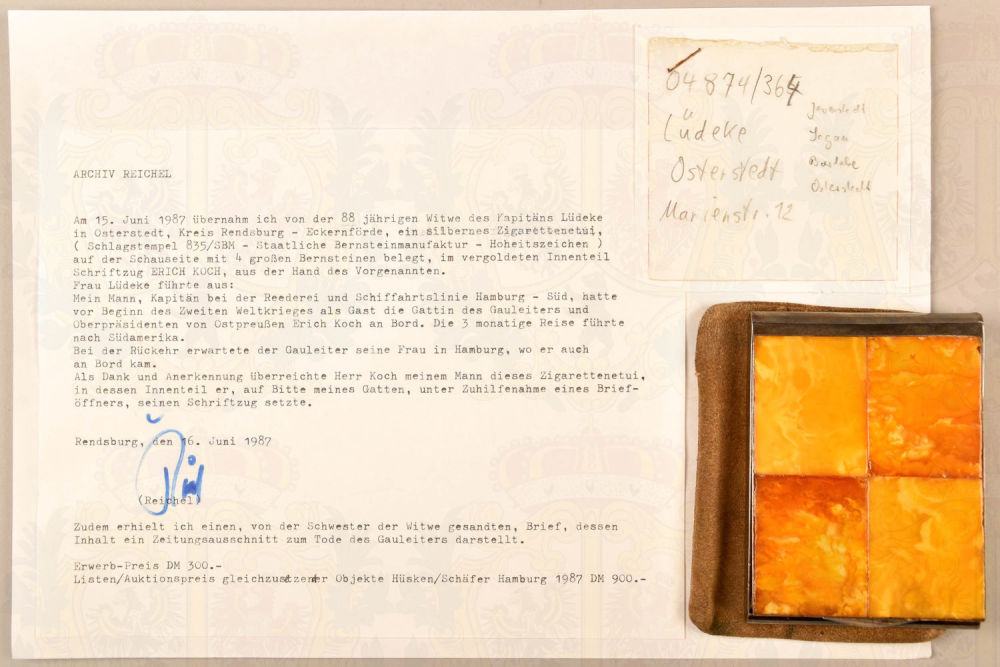 ARCHIV REICHEL
Am 15. Juni 1987 übernahm ich von der 88 jährigen Witwe des Kapitäns Lüdeke
in Osterstedt, Kreis Rendsburg - Eckernförde, ein silbernes Zigarettenetui,
( Schlagstempel 835/SBM - Staatliche Bernsteinmanufaktur - Hoheitszeichen )
auf der Schauseite mit 4 großen Bernsteinen belegt, im vergoldeten Innenteil
Schriftzug ERICH KOCH, aus der Hand des Vorgenannten.
Frau Lüdeke führte aus:
Mein Mann, Kapitän bei der Reederei und Schiffahrtslinie Hamburg - Süd, hatte
vor Beginn des Zweiten Weltkrieges als Gast die Gattin des Gauleiters und
Oberpräsidenten von Ostpreußen Erich Koch an Bord. Die 3 monatige Reise führte
nach Südamerika.
Bei der Rückehr erwartete der Gauleiter seine Frau in Hamburg, wo er auch
an Bord kam.
Als Dank und Anerkennung überreichte Herr Koch meinem Mann dieses Zigarettenetui,
in dessen Innenteil er, auf Bitte meines Gatten, unter Zuhilfenahme eines Brief-
öffners, seinen Schriftzug setzte.
Rendsburg, den 16. Juni 1987
(Reichel)
Zudem erhielt ich einen, von der Schwester der Witwe gesandten, Brief, dessen
Inhalt ein Zeitungsausschnitt zum Tode des Gauleiters darstellt.
Erwerb-Preis DM 300.-
Listen/Auktionspreis Objekte Hüsken/Schäfer Hamburg 1987 DM 900.-
04874/364
Lüdeke
Osterstedt
Marienstr. 12
Jevenstedt
Osterstedt